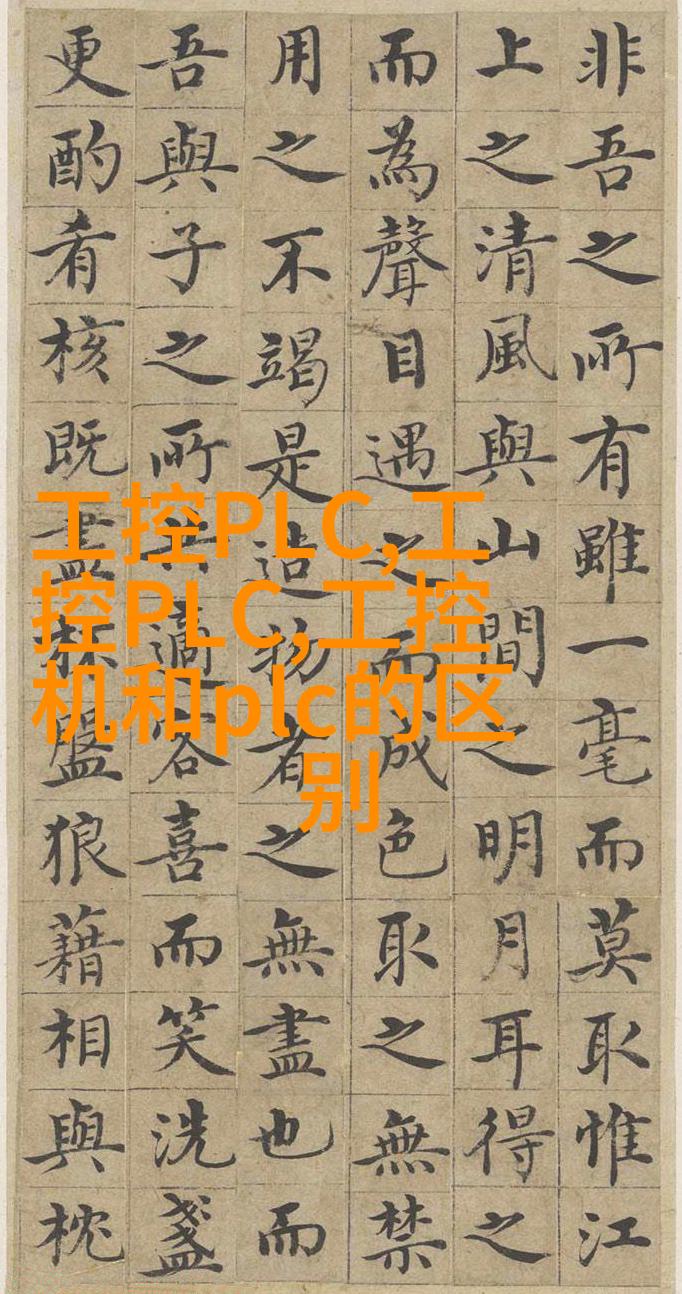 非吾之所有雖一毫而莫取惟江
上之清風與山間之明月耳得之
而為聲目遇之而成色取之無禁
用之不竭是造物者之無盡也而
吾與子之所共適客喜而笑洗盞
更酌肴核既盡杯盤狼藉相與枕
工控PLC,工
控PLC,工控
机和plc的区
别